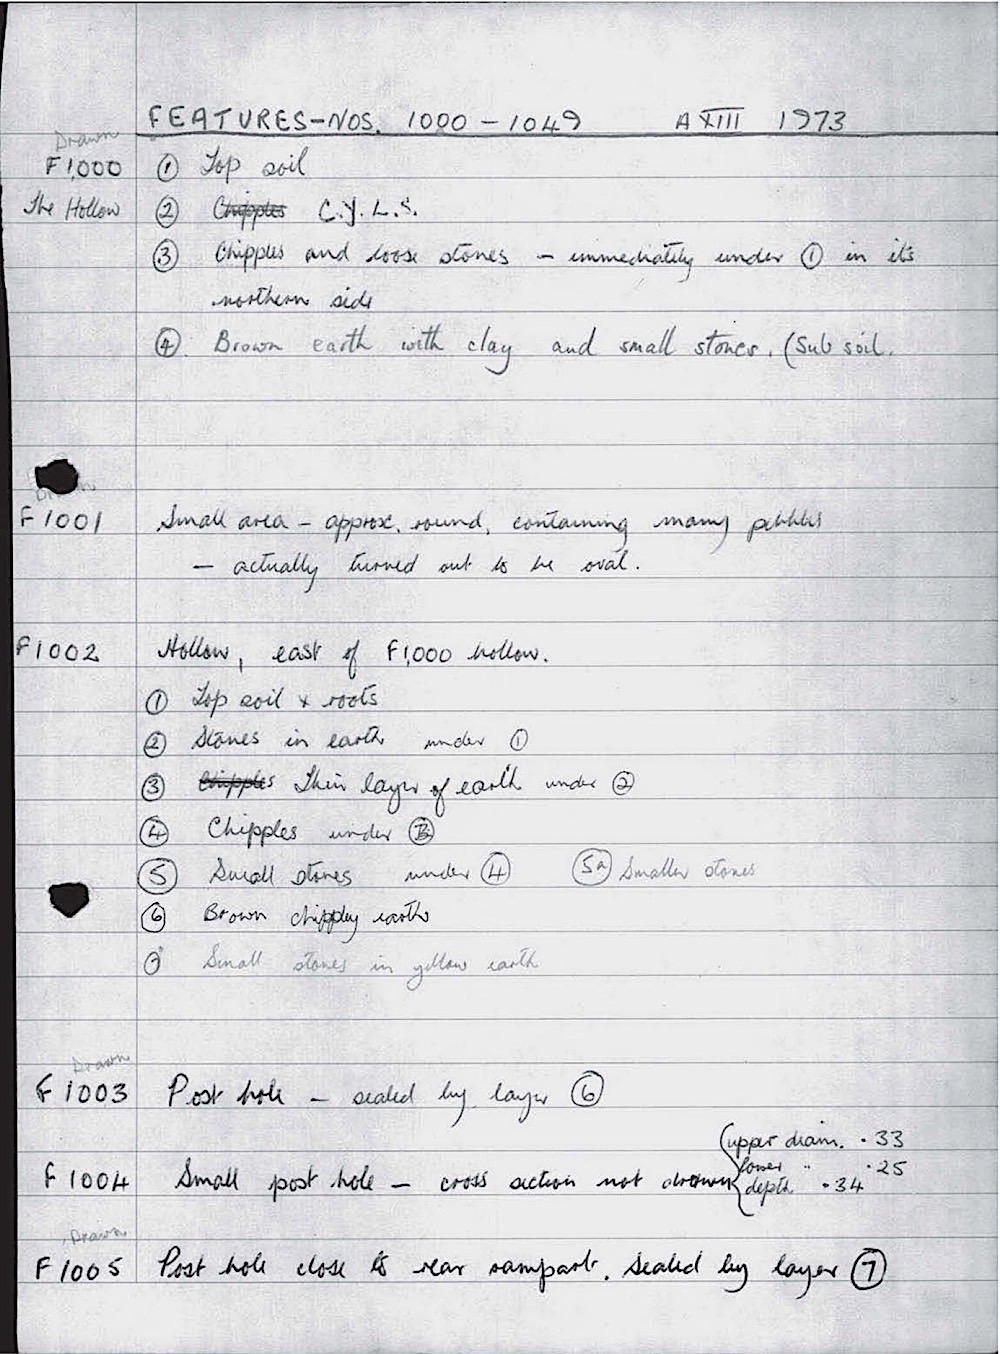 FEATURES-NOS. 1000 - 1049 A XIII 1973
Drawn
F1,000 ① Top soil
The Hollow ② Chipples C.Y.L.S.
③ Chipples and loose stones - immediately under ① in it's
northern side
④ Brown earth with clay and small stones. (Sub soil.
Drawn
F1001 Small area - approx. round, containing many pebbles
- actually turned out to be oval.
F1002 Hollow, east of F1,000 hollow.
① Top soil & roots
② Stones in earth under ①
③ Chipples Thin layer of earth under ②
④ Chipples under ③
⑤ Small stones under ④ 5a Smaller stones
⑥ Brown chippley earth
⑦ Small stones in yellow earth
Drawn
F1003 Post hole - sealed by layer ⑥
(upper diam. .33
F1004 Small post hole - cross section not drawn lower " .25
depth .34
Drawn
F1005 Post hole close to rear rampart. Sealed by layer ⑦